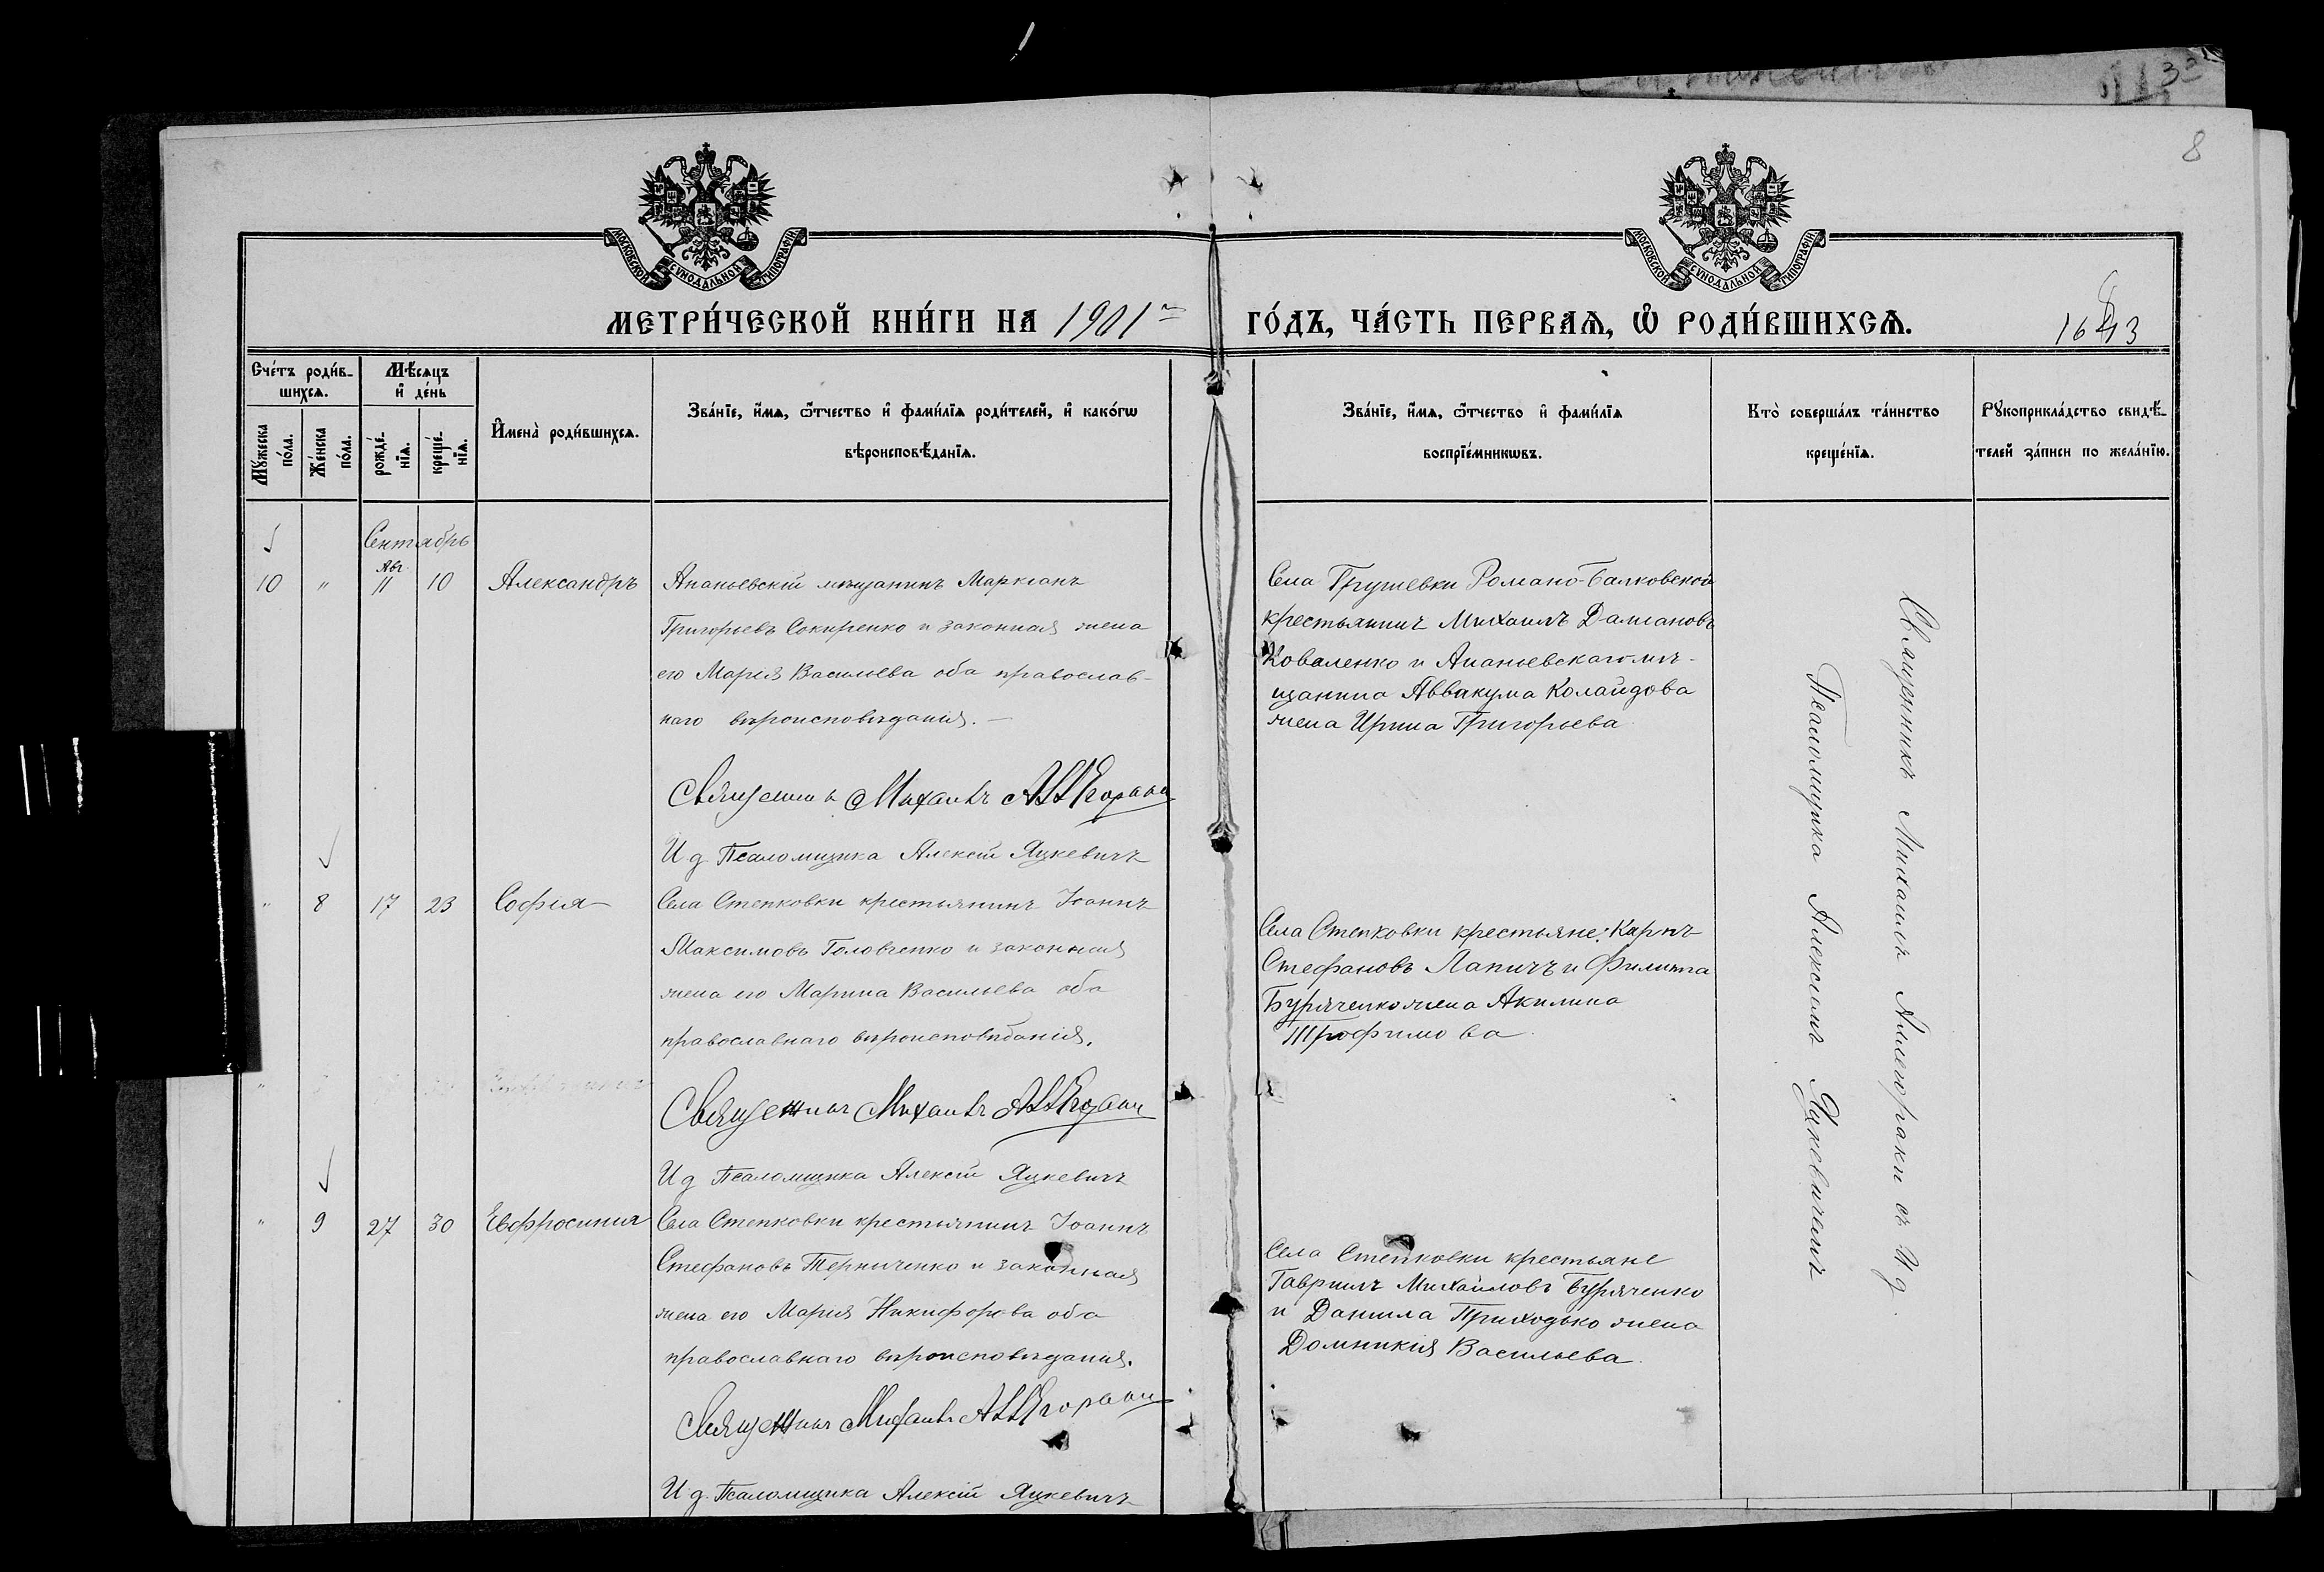 8
МОСКОВСКОЙ СѴНОДАЛЬНОЙ ТИПОГРАФІИ
МОСКОВСКОЙ СѴНОДАЛЬНОЙ ТИПОГРАФІИ
МЕТРИ́ЧЕСКОЙ КНИ́ГИ НА 1901 ГО́ДЪ, ЧА́СТЬ ПЕРВАѦ, Ѡ҆ РОДИ́ВШИХСѦ.
Сче́тъ роди́в-
шихсѧ.
Мꙋ́жеска по́ла.
Же́нска по́ла.
Мѣ́сѧцъ
и҆ де́нь
рожде́-
нїѧ.
креще́-
нїѧ.
И҆мена̀ роди́вшихсѧ.
Зва́нїе, и҆́мѧ, ѻ҆́тчество и҆ фами́лїѧ роди́телей, и҆ како́гѡ
вѣроисповѣ́данїѧ.
Зва́нїе, и҆́мѧ, ѻ҆́тчество и҆ фами́лїѧ
воспрїе́мникѡвъ.
Кто̀ соверша́лъ та́инство
креще́нїѧ.
Рꙋкоприкла́дство свидѣ́-
телей за́писи по жела́нїю.
Сентябрь
Авг
10 " 11 10 Александръ
Ананьевскій мѣщанинъ Маркіанъ
Григорьевъ Сокиренко и законная жена
его Марія Васильева оба православ-
наго вѣроисповѣданія.—
Священникъ Михаилъ
И д Псаломщика Алексій Яцкевичъ
Села Грушевки Романо-Балковской
крестьянинъ Михаилъ Даміановъ
Коваленко и Ананьевскаго мѣ-
щанина Аввакума Колайдова
жена Ирина Григорьева
" 8 17 23 Софія
Села Степковки крестьянинъ Іоаннъ
Максимовъ Головченко и законная
жена его Марина Васильева оба
православнаго вѣроисповѣданія.
Священникъ Михаилъ
И д Псаломщика Алексій Яцкевичъ
Села Степковки крестьяне: Карпъ
Стефановъ Лапичъ и Филиппа
Буряченко жена Акилина
Трофимова
" 9 27 30 Евфросинія
Села Степковки крестьянинъ Іоаннъ
Стефановъ Терниченко и законная
жена его Марія Никифорова оба
православнаго вѣроисповѣданія.
Священникъ Михаилъ
И д. Псаломщика Алексій Яцкевичъ
Села Степковки крестьяне
Гавріилъ Михайловъ Буряченко
и Даніила Приходько жена
Домникія Васильева.
Священникъ Михаилъ съ И д.
Псаломщика Алексіемъ Яцкевичемъ